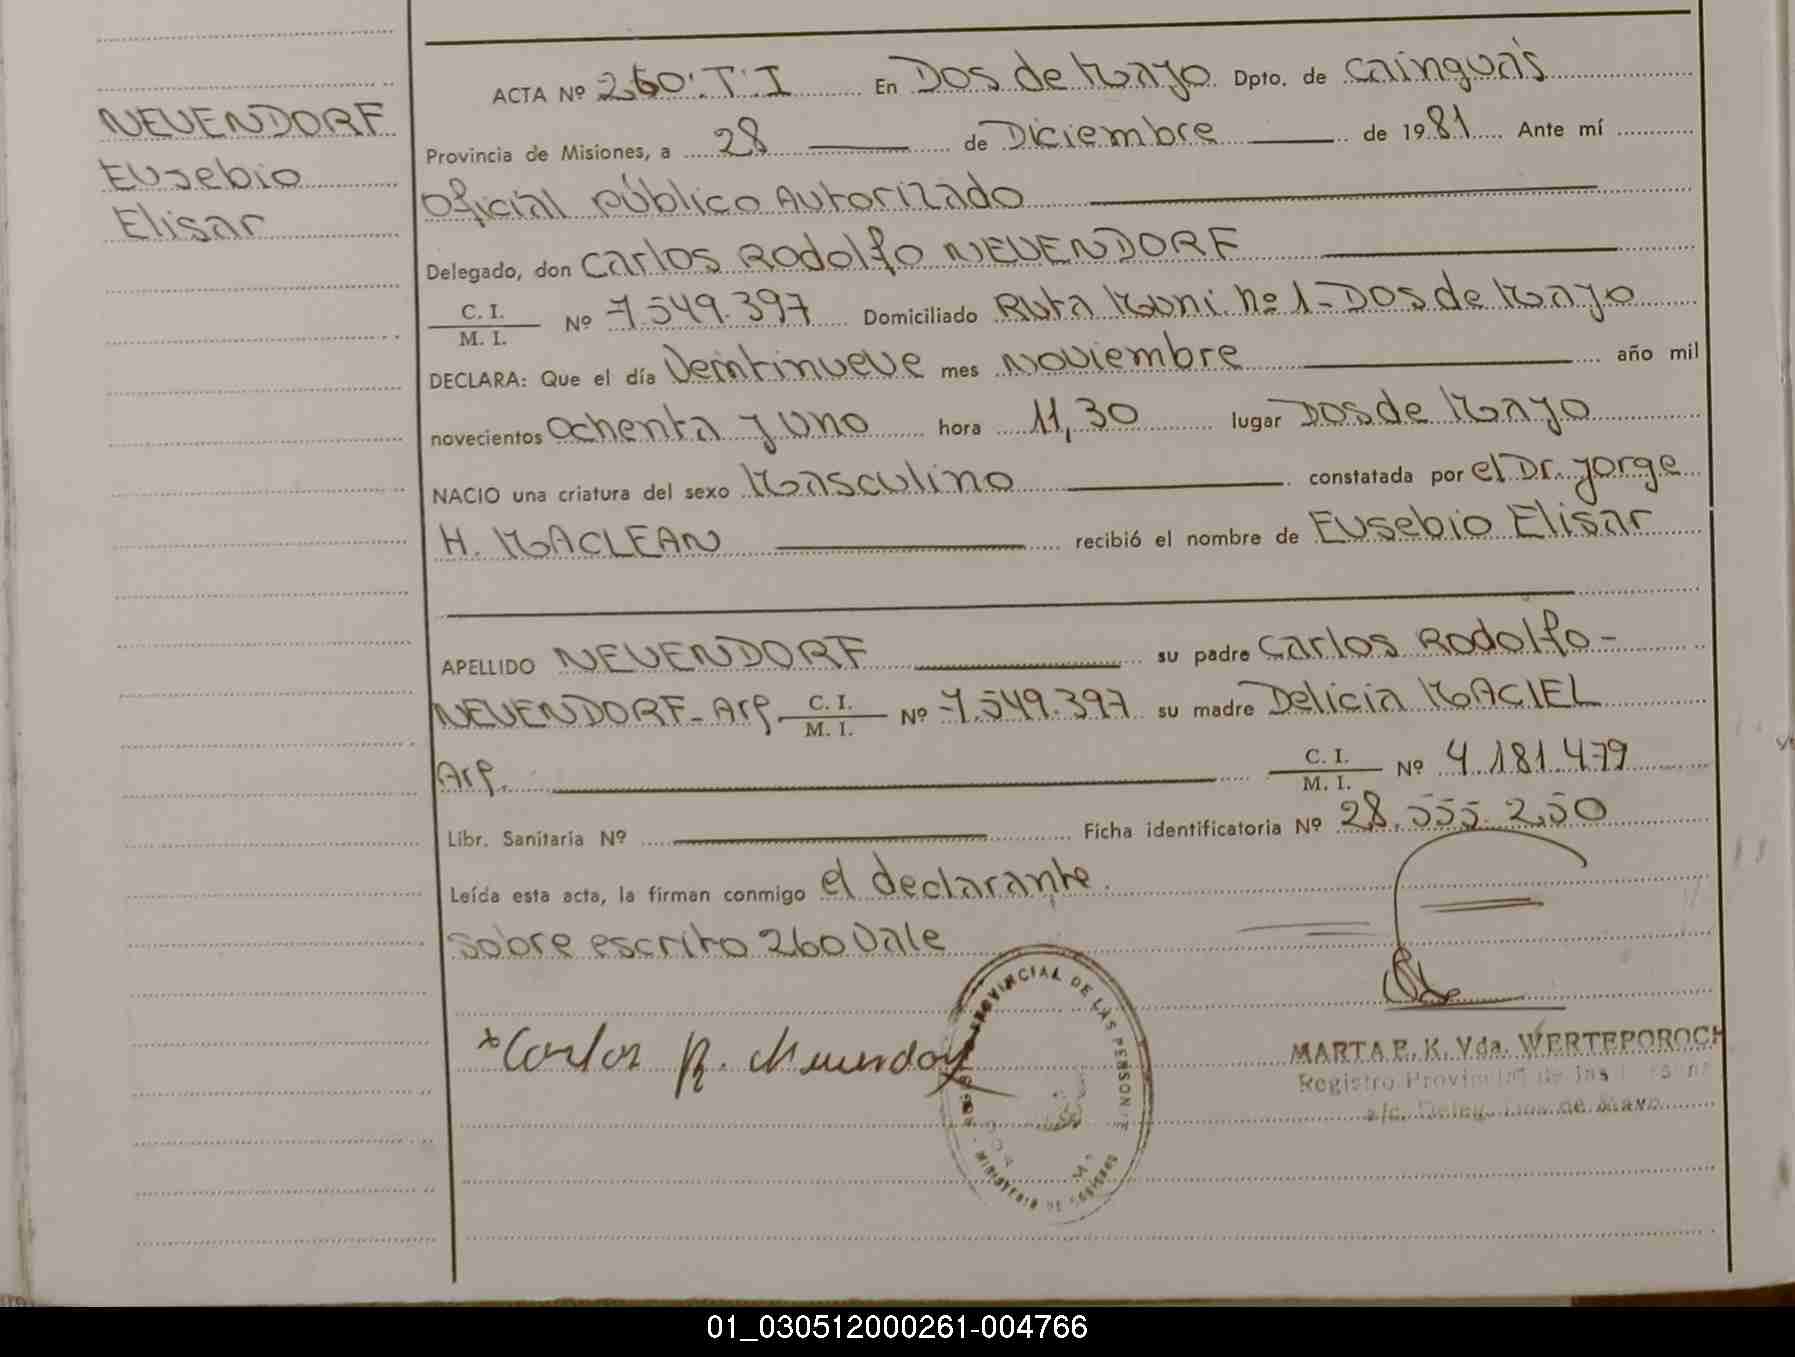 NEUENDORF
Eusebio
Elisar
ACTA Nº 260.T.I En Dos de Mayo Dpto. de Cainguas
Provincia de Misiones, a 28 de Diciembre de 1981 Ante mí
Oficial Público Autorizado
Delegado, don Carlos Rodolfo NEUENDORF
C. I.
M. I. Nº 7.549.397 Domiciliado Ruta Muni. Nº 1-Dos de Mayo
DECLARA: Que el día Veintinueve mes Noviembre año mil
novecientos Ochenta y Uno hora 11,30 lugar Dos de Mayo
NACIO una criatura del sexo Masculino constatada por el Dr. Jorge
H. MACLEAN recibió el nombre de Eusebio Elisar
APELLIDO NEUENDORF su padre Carlos Rodolfo-
NEUENDORF-Arg. C. I. M. I. Nº 7.549.397 su madre Delicia MACIEL
Arg. C. I. M. I. Nº 4.181.479
Libr. Sanitaria Nº Ficha identificatoria Nº 28.555.250
Leída esta acta, la firman conmigo el declarante.
Sobre escrito 260 Vale
Carlos R. Neuendorf
PROVINCIAL DE LAS PERSON
MARTA E. K. Vda. WERTEPOROCH
Registro Provincial de las
a/c. Deleg. Dos de Mayo
01_030512000261-004766